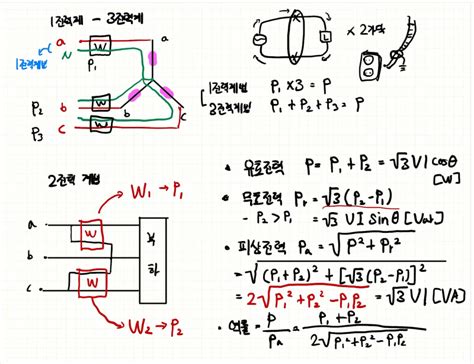 1전력계 - 3전력계
1전력계법
a
N
W
P₁
a
P₂
b
W
b
P₃
c
W
c
L
× 2가닥
1전력계법 P₁ × 3 = P
3전력계법 P₁ + P₂ + P₃ = P
2전력 계법
W₁ → P₁
a
W
b
부하
c
W
W₂ → P₂
• 유효전력 P = P₁ + P₂ = √3 VI cosθ [W]
• 무효전력 Pᵣ = √3 (P₂ - P₁)
- P₂ > P₁ = √3 VI sinθ [Var]
• 피상전력 Pₐ = √(P² + Pᵣ²)
= √((P₁ + P₂)² + [√3 (P₂ - P₁)]²)
= 2√(P₁² + P₂² - P₁P₂) = √3 VI [VA]
• 역률 = P/Pₐ = (P₁ + P₂)/(2√(P₁² + P₂² - P₁P₂))